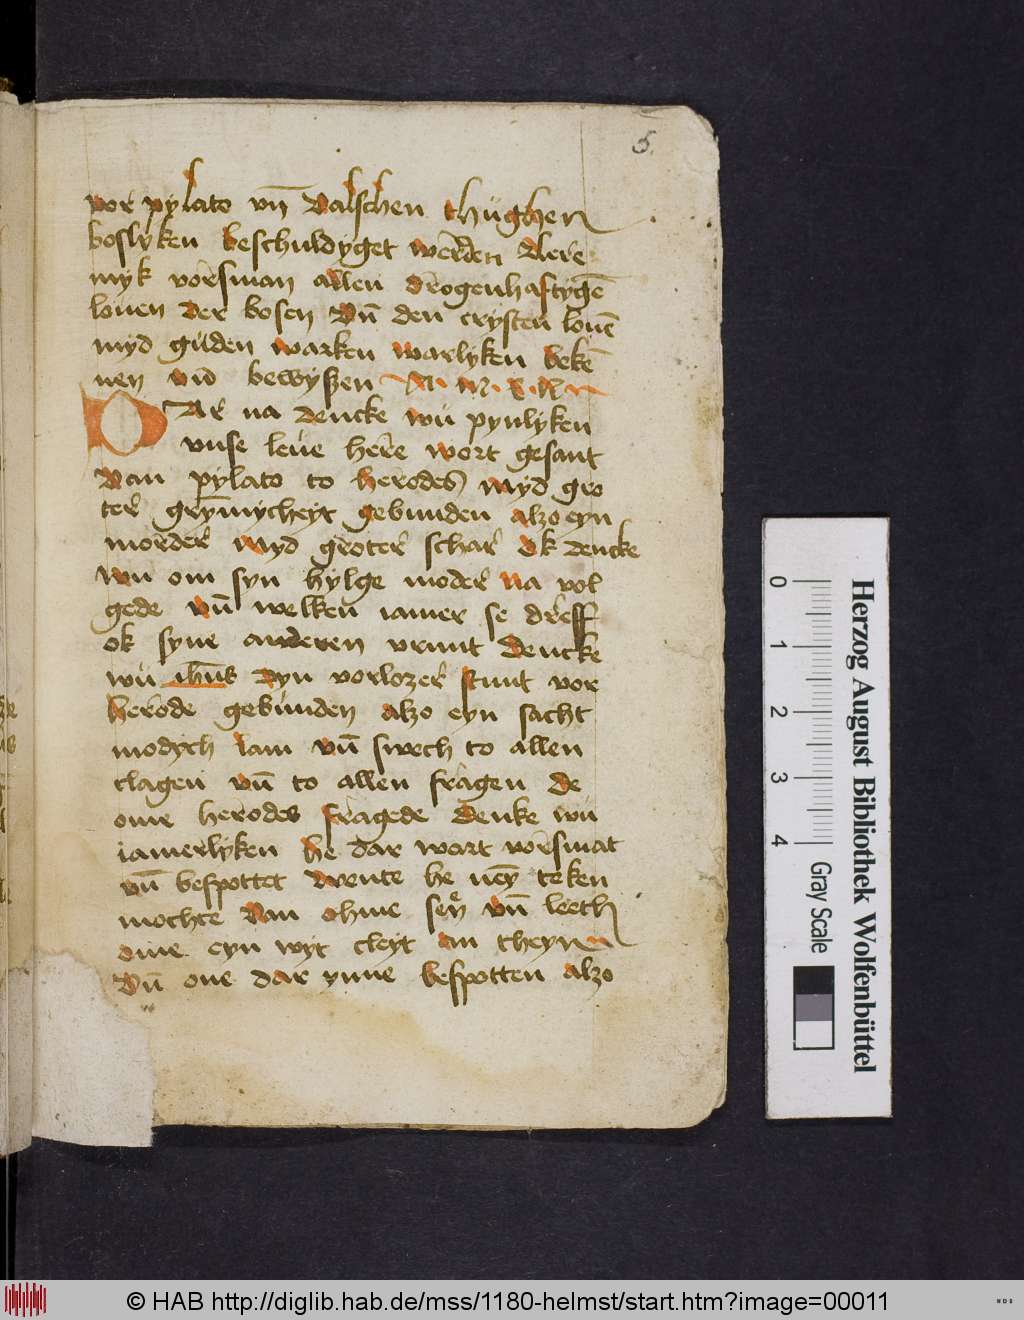 5.
vor pylato vn̄ valschen thüghen
boslyken beschuldyget werden Here
myk vorsman allen drogenhaftygē
louen der bosen Vn̄ den crysten louē
myd guden warken warlyken bekē
nen vn̄ bewyszen
DAr na dencke wü pynlyken
vnse leüe here wort gesant
Van pylato to herodes myd gro
ter grȳmycheyt gebunden alzo eyn
morder myd groter schar Ok dencke
wü om syn hylge moder na vol
gede vn̄ welken iamer se dreff
ok syne anderen vrunt dencke
wü ihūs dyn vorlozer stunt vor
herode gebunden alzo eyn sacht
modych lam vn̄ swech to allen
clagen vn̄ to allen fragen de
ome herodes fragede denke wü
iamerlyken he dar wart vorsmat
vn̄ bespottet wente he neȳ teken
mochte van ohme seÿ vn̄ leeth
ome eyn wyt cleyt an theyn
Vn̄ one dar ynne bespotten alzo
0 1 2 3 4
Gray Scale
Herzog August Bibliothek Wolfenbüttel
© HAB http://diglib.hab.de/mss/1180-helmst/start.htm?image=00011